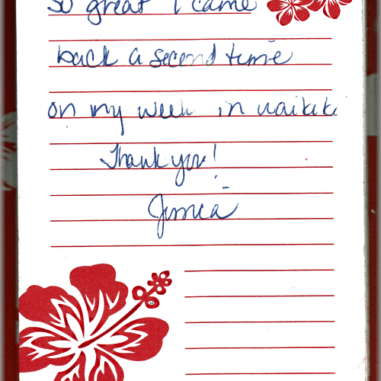 so great I came
back a second time
on my week in waikiki
Thank you!
Jessica